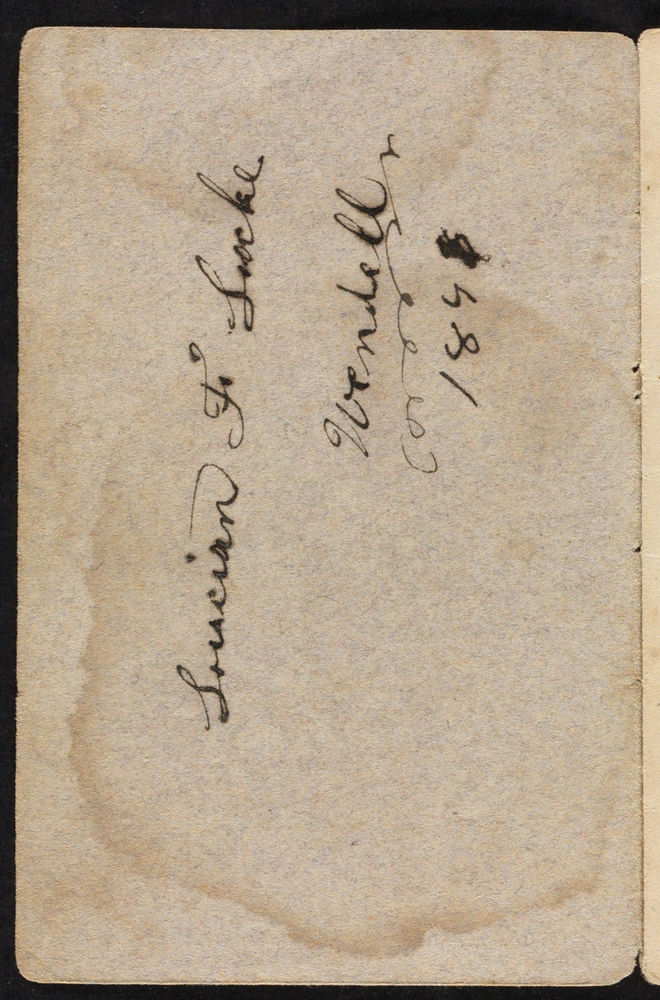 Loucian F. Locke.
Wendell
189